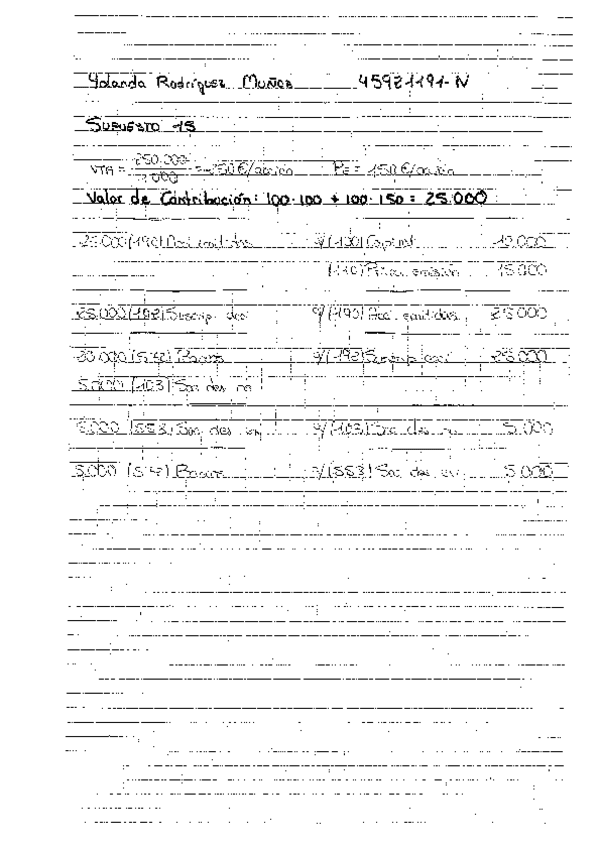 Yolanda Rodríguez Muñoz 45921191-N
SUPUESTO 15
VTA = 250.000 = 250€/acción PE = 150€/acción
Valor de Contribución: 100·100 + 100·150 = 25.000
25.000 (190) Acc. emitidas a/ (100) Capital 10.000
(110) Prima emisión 15.000
25.000 (192) Suscrip. des a/ (190) Acc. emitidas 25.000
20.000 (572) Bancos a/ (192) Suscrip. acc 25.000
5.000 (103) Soc. des. no
5.000 (553) Soc. des. a/ (103) Soc. des. no 5.000
5.000 (572) Bancos a/ (553) Soc. des. 5.000